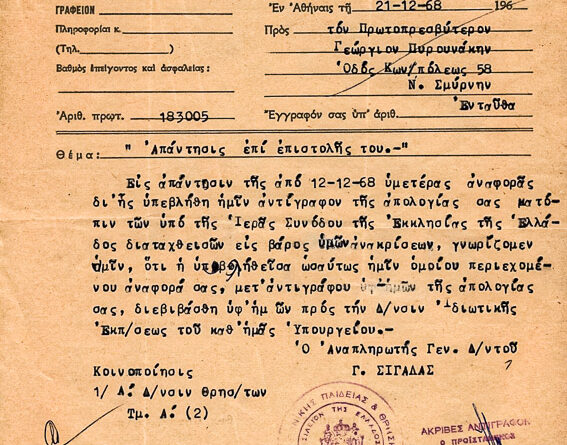 ΓΡΑΦΕΙΟΝ
Ἐν Ἀθήναις τῇ 21-12-68 196
Πληροφορίαι κ.
Πρὸς τόν Πρωτοπρεσβύτερον
(Τηλ. )
Γεώργιον Πυρουνάκην
Βαθμὸς ἐπείγοντος καὶ ἀσφαλείας :
Ὁδός Κων/πόλεως 58
Ν. Σμύρνην
Ἐνταῦθα
Ἀριθ. πρωτ. 183005
Ἔγγραφόν σας ὑπ' ἀριθ.
Θέμα: " Ἀπάντησις ἐπί ἐπιστολῆς του.-"
Εἰς ἀπάντησιν τῆς ἀπό 12-12-68 ὑμετέρας ἀναφορᾶς
δι'ἧς ὑπεβλήθη ἡμῖν ἀντίγραφον τῆς ἀπολογίας σας κατό-
πιν τῶν ὑπό τῆς Ἱερᾶς Συνόδου τῆς Ἐκκλησίας τῆς Ἑλλά-
δος διαταχθεισῶν εἰς βάρος ὑμῶν ἀνακρίσεων, γνωρίζομεν
ὑμῖν, ὅτι ἡ ὑποβληθεῖσα ὡσαύτως ἡμῖν ὁμοίου περιεχομέ-
νου ἀναφορά σας, μετ'ἀντιγράφου τῆς ἀπολογίας
σας, διεβιβάσθη ὑφ'ἡμῶν πρός τήν Δ/νσιν Ἰδιωτικῆς
Ἐκπ/σεως τοῦ καθ'ἡμᾶς Ὑπουργείου.-
Ὁ Ἀναπληρωτής Γεν. Δ/ντοῦ
Κοινοποίησις
Γ. ΣΙΓΑΛΑΣ
1/ Α΄ Δ/νσιν θρησ/των
Τμ. Α΄ (2)
ΝΙΚΗΣ ΠΑΙΔΕΙΑΣ & ΘΡΗΣ
ΑΚΡΙΒΕΣ ΑΝΤΙΓΡΑΦΟΝ
Ο ΠΡΟΪΣΤΑΜΕΝΟΣ